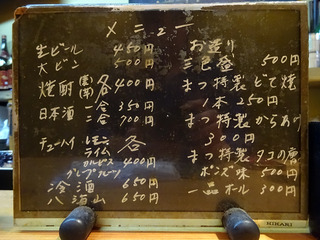 メニュー
生ビール 450円
大ビン 500円
焼酎 各400円
日本酒 一合 350円
二合 700円
チューハイ レモン
ライム 各
カルピス 400円
グレープフルーツ
冷酒 650円
八海山 650円
お造り
三色盛 500円
まつ特製 どて焼
1本 250円
まつ特製 からあげ
300円
まつ特製 タコの唐
ポンズ味 500円
一品 オール 300円